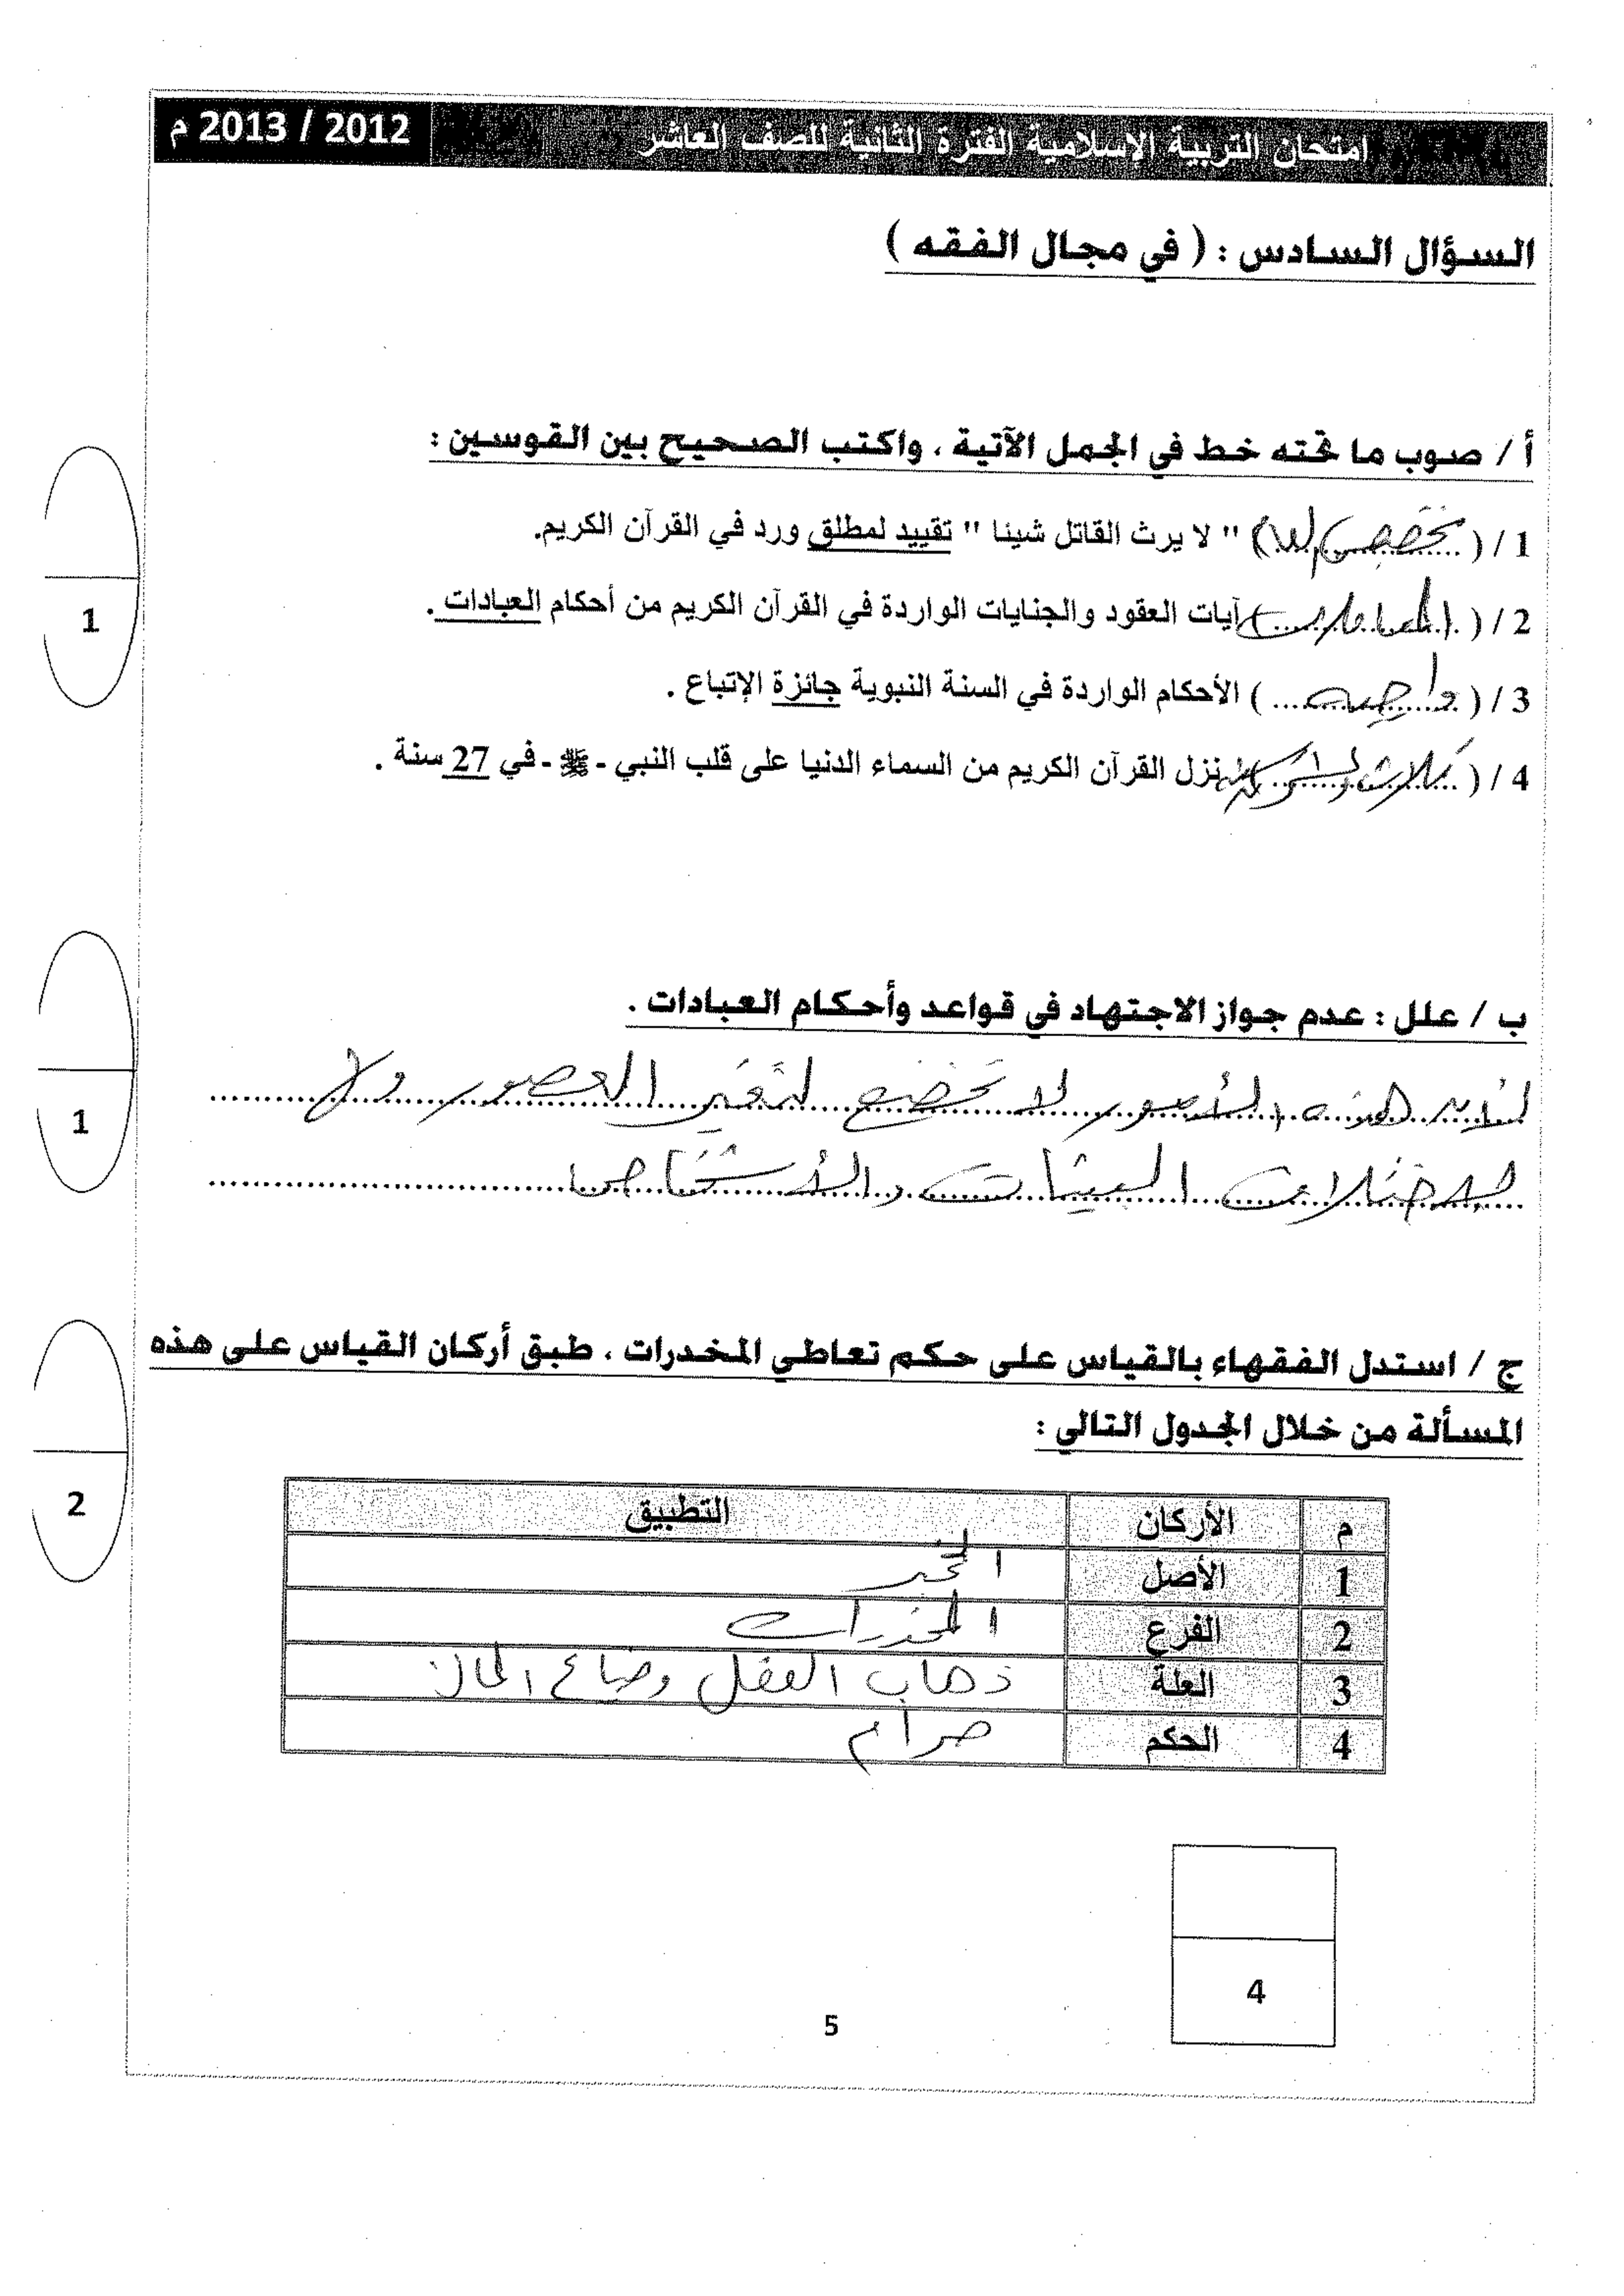 امتحان التربية الإسلامية الفترة الثانية للصف العاشر 2012 / 2013 م
السؤال السادس : ( في مجال الفقه )
أ / صوب ما تحته خط في الجمل الآتية ، واكتب الصحيح بين القوسين :
1
1 / ( تخصيص لعام ) " لا يرث القاتل شيئا " تقييد لمطلق ورد في القرآن الكريم.
2 / ( المعاملات ) آيات العقود والجنايات الواردة في القرآن الكريم من أحكام العبادات .
3 / ( واجبه ) الأحكام الواردة في السنة النبوية جائزة الإتباع .
4 / ( نزل القرآن الكريم من السماء الدنيا على قلب النبي - ﷺ - في 27 سنة .
1
ب / علل : عدم جواز الاجتهاد في قواعد وأحكام العبادات .
لأن هذه الأمور لا تخضع لتغير العصور ولا
لاختلاف البيئات والأشخاص
2
ج / استدل الفقهاء بالقياس على حكم تعاطي المخدرات ، طبق أركان القياس على هذه
المسألة من خلال الجدول التالي :
م الأركان التطبيق
1 الأصل الخمر
2 الفرع المخدرات
3 العلة ذهاب العقل وضياع المال
4 الحكم حرام
4
5